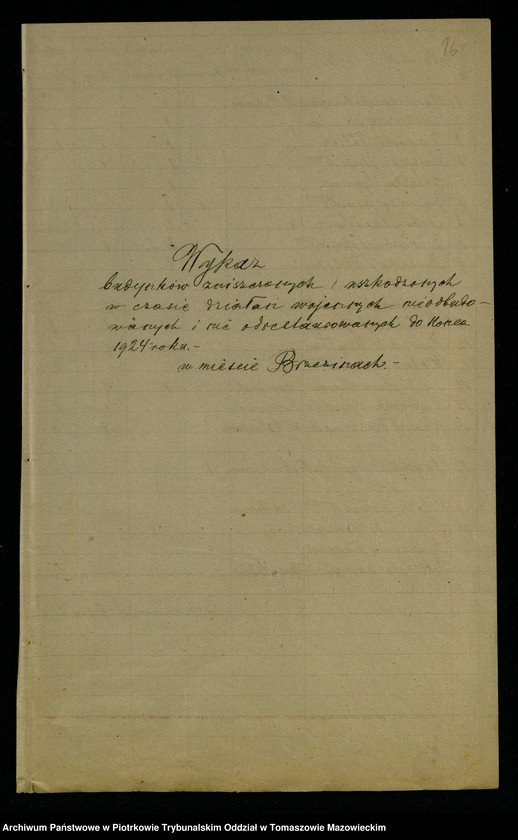 16
Wykaz
budynków zniszczonych i uszkodzonych
w czasie działań wojennych nieodbudo-
wanych i nie odrestaurowanych do końca
1924 roku.-
w mieście Brzezinach.-
Archiwum Państwowe w Piotrkowie Trybunalskim Oddział w Tomaszowie Mazowieckim